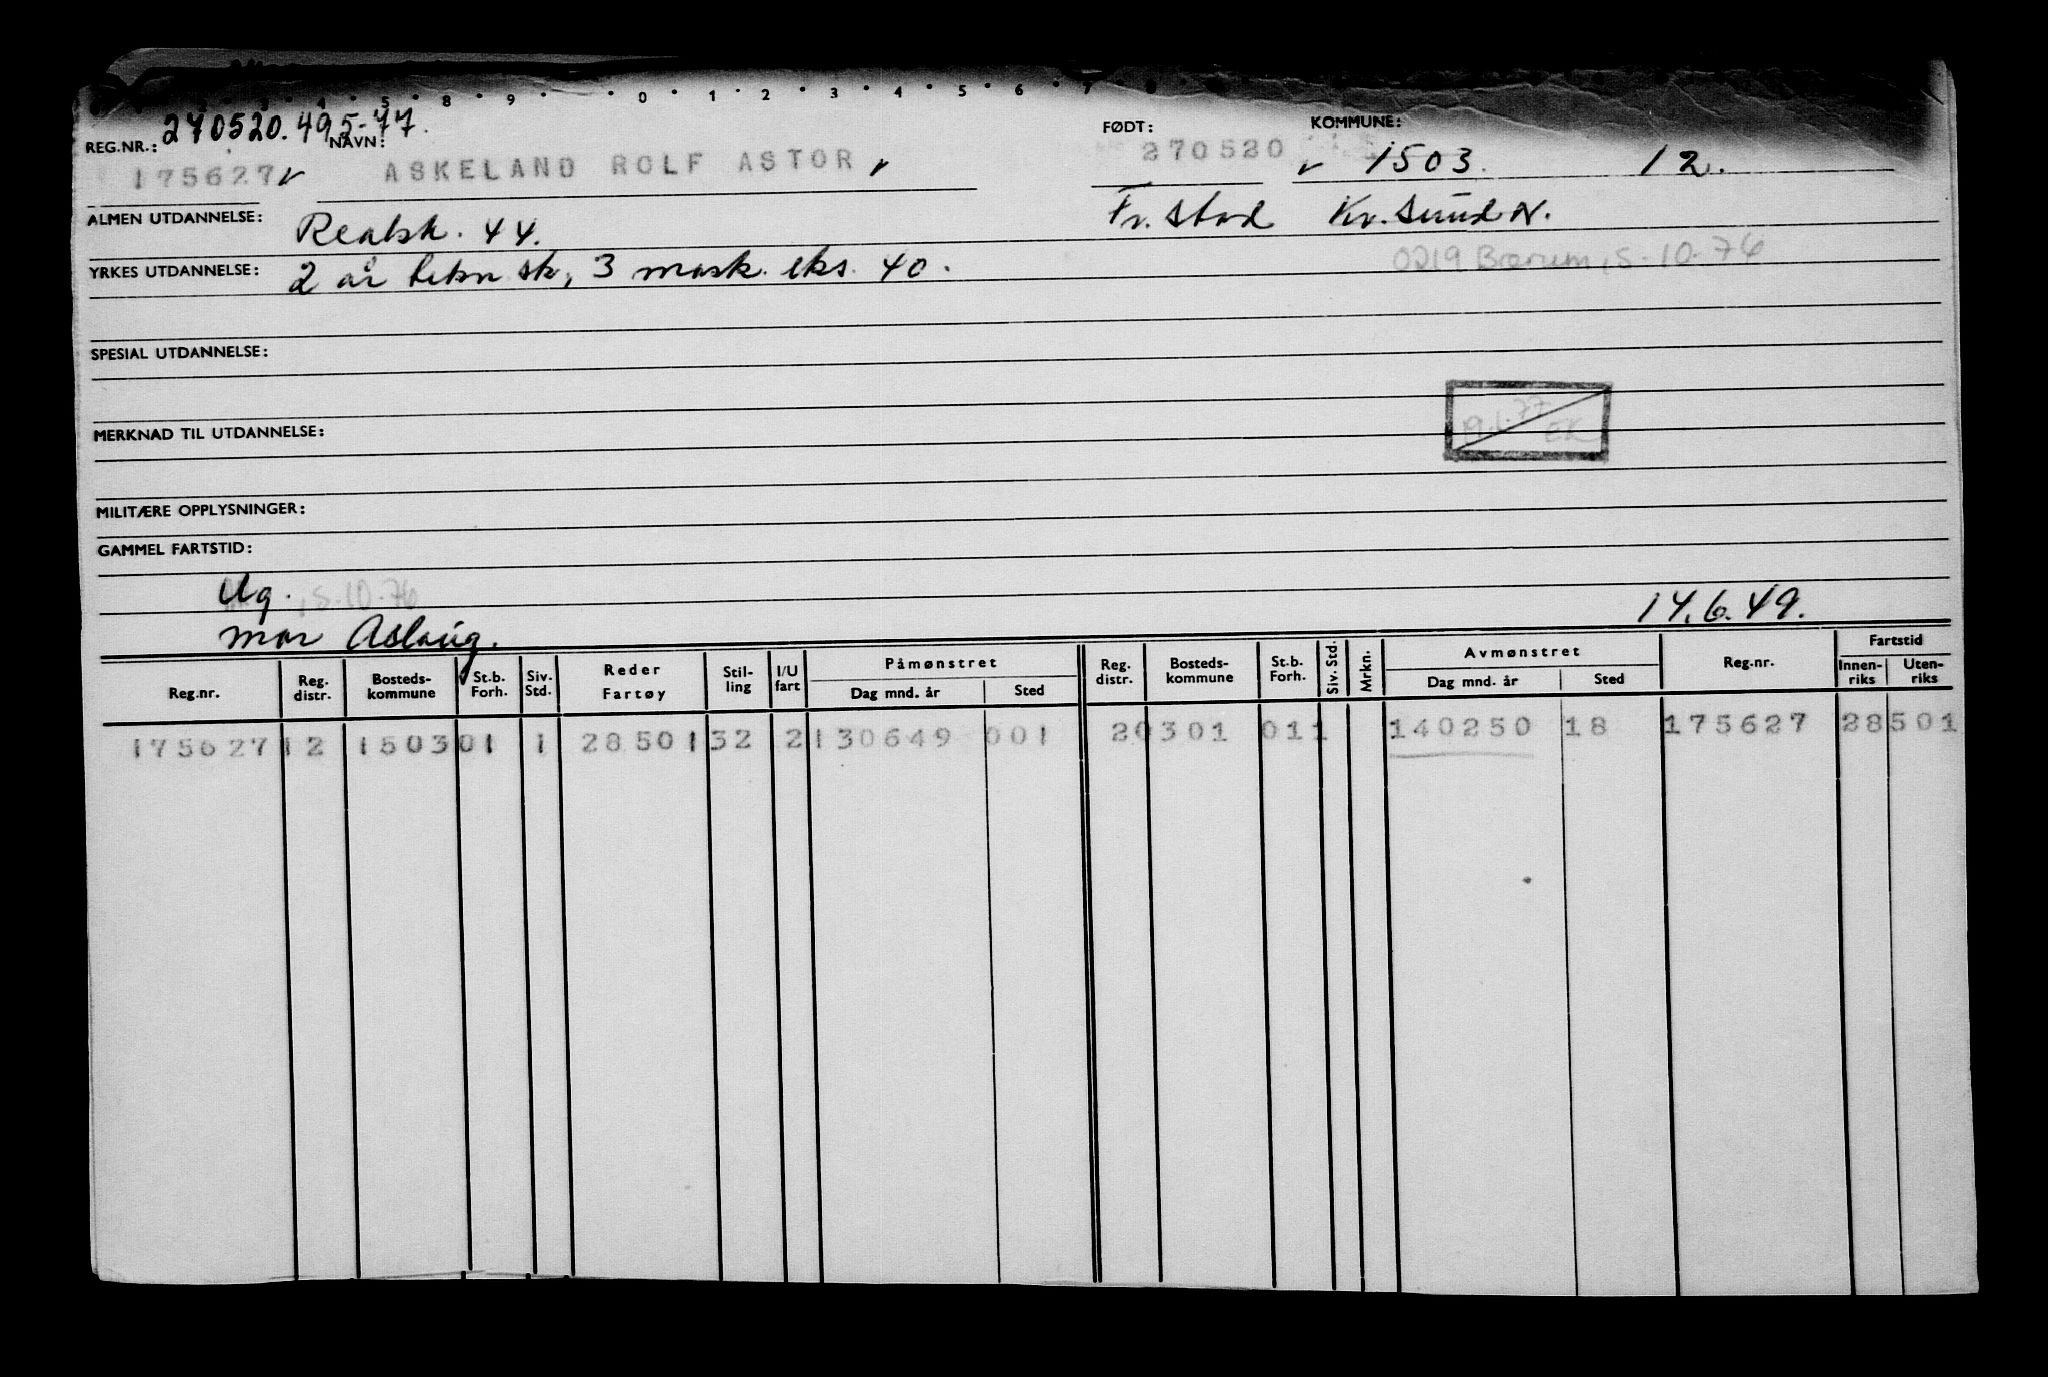 2 · 3 · 4 · 5 · 8 · 9 · · 0 · 1 · 2 · 3 · 4 · 5 · 6 · 7 · 8
270520.495-77.
REG.NR.: NAVN: FØDT: KOMMUNE:
175627 v ASKELAND ROLF ASTOR v 270520 v 1503. 12.
ALMEN UTDANNELSE: Realsk. 44. Fr.stad Kr.sund N.
YRKES UTDANNELSE: 2 år tekn sk, 3 mask. eks. 40. 0219 Bærum, 5-10-76
SPESIAL UTDANNELSE:
MERKNAD TIL UTDANNELSE: 19.1.77 EK
MILITÆRE OPPLYSNINGER:
GAMMEL FARTSTID:
Ug. , 5-10-76
mor Aslaug. 14.6.49.
Reg.nr. Reg. distr. Bosteds-kommune St.b. Forh. Siv. Std. Reder Fartøy Stil-ling I/U fart Påmønstret Dag mnd. år Sted Reg. distr. Bosteds-kommune St.b. Forh. Siv. Std. Mrkn. Avmønstret Dag mnd. år Sted Reg.nr. Fartstid Innen-riks Uten-riks
175627 12 1503 01 1 28501 32 2 130649 001 20301 011 140250 18 175627 28501